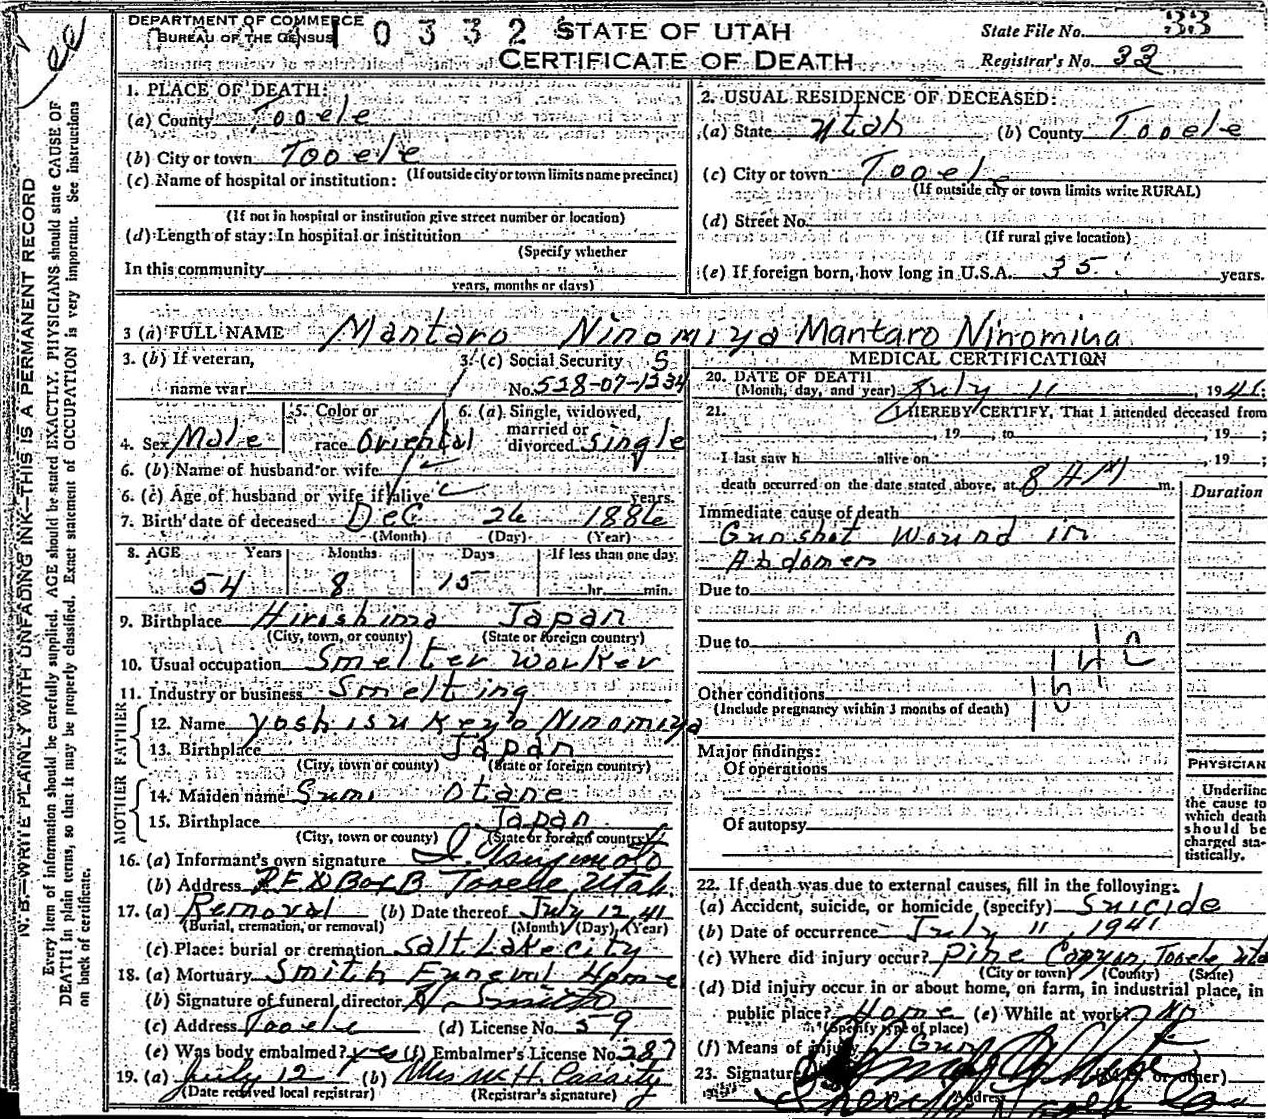 DEPARTMENT OF COMMERCE
BUREAU OF THE CENSUS
0332
STATE OF UTAH
CERTIFICATE OF DEATH
State File No. 33
Registrar's No. 33
1. PLACE OF DEATH:
(a) County Tooele
(b) City or town Tooele
(If outside city or town limits name precinct)
(c) Name of hospital or institution:
(If not in hospital or institution give street number or location)
(d) Length of stay: In hospital or institution
(Specify whether
In this community
years, months or days)
2. USUAL RESIDENCE OF DECEASED:
(a) State Utah (b) County Tooele
(c) City or town Tooele
(If outside city or town limits write RURAL)
(d) Street No.
(If rural give location)
(e) If foreign born, how long in U.S.A. 35 years.
3 (a) FULL NAME Mantaro Ninomiya Mantaro Ninomiya
3. (b) If veteran,
name war
3. (c) Social Security
No. 528-07-1234
4. Sex Male
5. Color or
race Oriental
6. (a) Single, widowed,
married or
divorced single
6. (b) Name of husband or wife
6. (c) Age of husband or wife if alive years.
7. Birth date of deceased Dec 26 1886
(Month) (Day) (Year)
8. AGE Years Months Days If less than one day
54 8 15 hr. min.
9. Birthplace Hiroshima Japan
(City, town, or county) (State or foreign country)
10. Usual occupation Smelter worker
11. Industry or business Smelting
FATHER
12. Name Yoshisukeyo Ninomiya
13. Birthplace Japan
(City, town or county) (State or foreign country)
MOTHER
14. Maiden name Sumi Otane
15. Birthplace Japan
(City, town or county) (State or foreign country)
16. (a) Informant's own signature
(b) Address R.F.D Box B Tooele, Utah
17. (a) Removal (b) Date thereof July 12, 41
(Burial, cremation, or removal) (Month) (Day) (Year)
(c) Place: burial or cremation Salt Lake City
18. (a) Mortuary Smith Funeral Home
(b) Signature of funeral director Smith
(c) Address Tooele (d) License No. 59
(e) Was body embalmed? yes (f) Embalmer's License No. 287
19. (a) July 12 (b) Mrs W. H. Cassity
(Date received local registrar) (Registrar's signature)
MEDICAL CERTIFICATION
20. DATE OF DEATH
(Month, day, and year) July 11, 1941;
21. I HEREBY CERTIFY, That I attended deceased from
, 19 ; to , 19 ;
I last saw h alive on , 19 ;
death occurred on the date stated above, at 8 AM m.
Duration
Immediate cause of death
Gunshot wound in
Abdomen
Due to
Due to
Other conditions
(Include pregnancy within 3 months of death)
Major findings:
Of operations
Of autopsy
PHYSICIAN
Underline
the cause to
which death
should be
charged sta-
tistically.
22. If death was due to external causes, fill in the following:
(a) Accident, suicide, or homicide (specify) Suicide
(b) Date of occurrence July 11, 1941
(c) Where did injury occur? Pine Canyon, Tooele Utah
(City or town) (County) (State)
(d) Did injury occur in or about home, on farm, in industrial place, in
public place? Home (e) While at work? No
(Specify type of place)
(f) Means of injury Gun
23. Signature (M.D. or other)
Address
N. B.—WRITE PLAINLY WITH UNFADING INK—THIS IS A PERMANENT RECORD
Every item of information should be carefully supplied. AGE should be stated EXACTLY. PHYSICIANS should state CAUSE OF
DEATH in plain terms, so that it may be properly classified. Exact statement of OCCUPATION is very important. See instructions
on back of certificate.